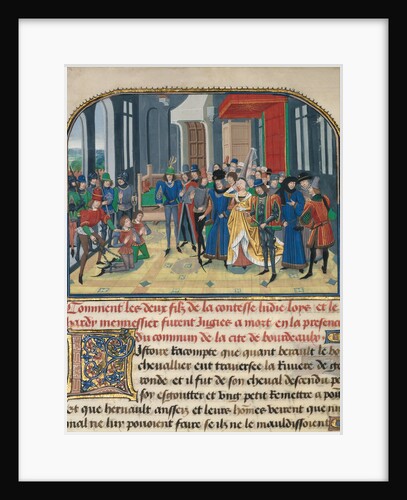 Comment les deux filz de la contesse ludie loys et le
hardy mennessier furent Jugies a mort en la presence
du commun de la cite de bourdeaulx
Istoire Racompte que quant berault le
chevallier eut traversee la Riviere de
ronde et il fut de son cheval descendu
soy esgoutter et ung petit Remettre a
et que hernault anssen et leurs hommes veirent que
mal ne luy pouoient faire se ilz ne le mauldissoient